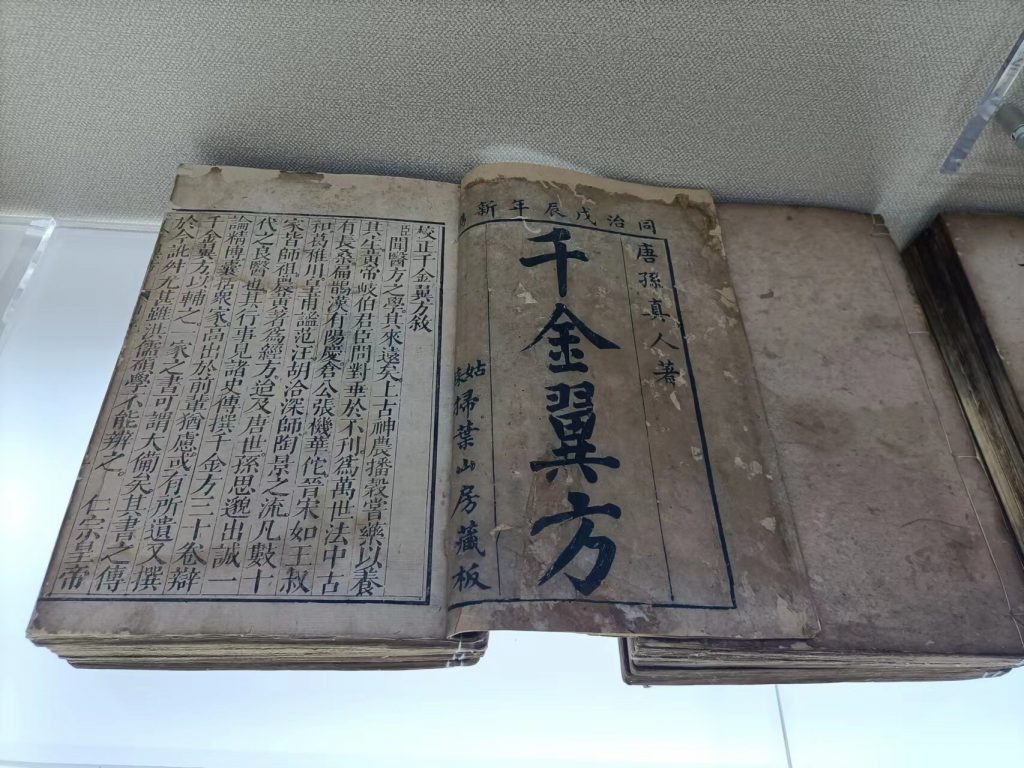 同治戊辰年新
唐孫真人著
千金翼方
姑掃葉山房藏板
校正千金翼方敘
臣聞醫方之學其來遠矣上古神農播穀嘗藥以養
其生黃帝岐伯君臣問對垂於不刋爲萬世法中古
有長桑扁鵲漢有陽慶倉公張機華佗晉宋如王叔
和葛稚川皇甫謐范汪胡洽深師陶景之流凡數十
家皆師祖農黃著爲經方迨及唐世孫思邈出誠一
代之良醫也其行事見諸史傳撰千金方三十卷辯
論精博囊括衆家高出於前輩猶慮或有所遺又撰
千金翼方以輔之一家之書可謂大備矣其書之傳
於今訛舛尤甚雖洪儒碩學不能辨之。仁宗皇帝